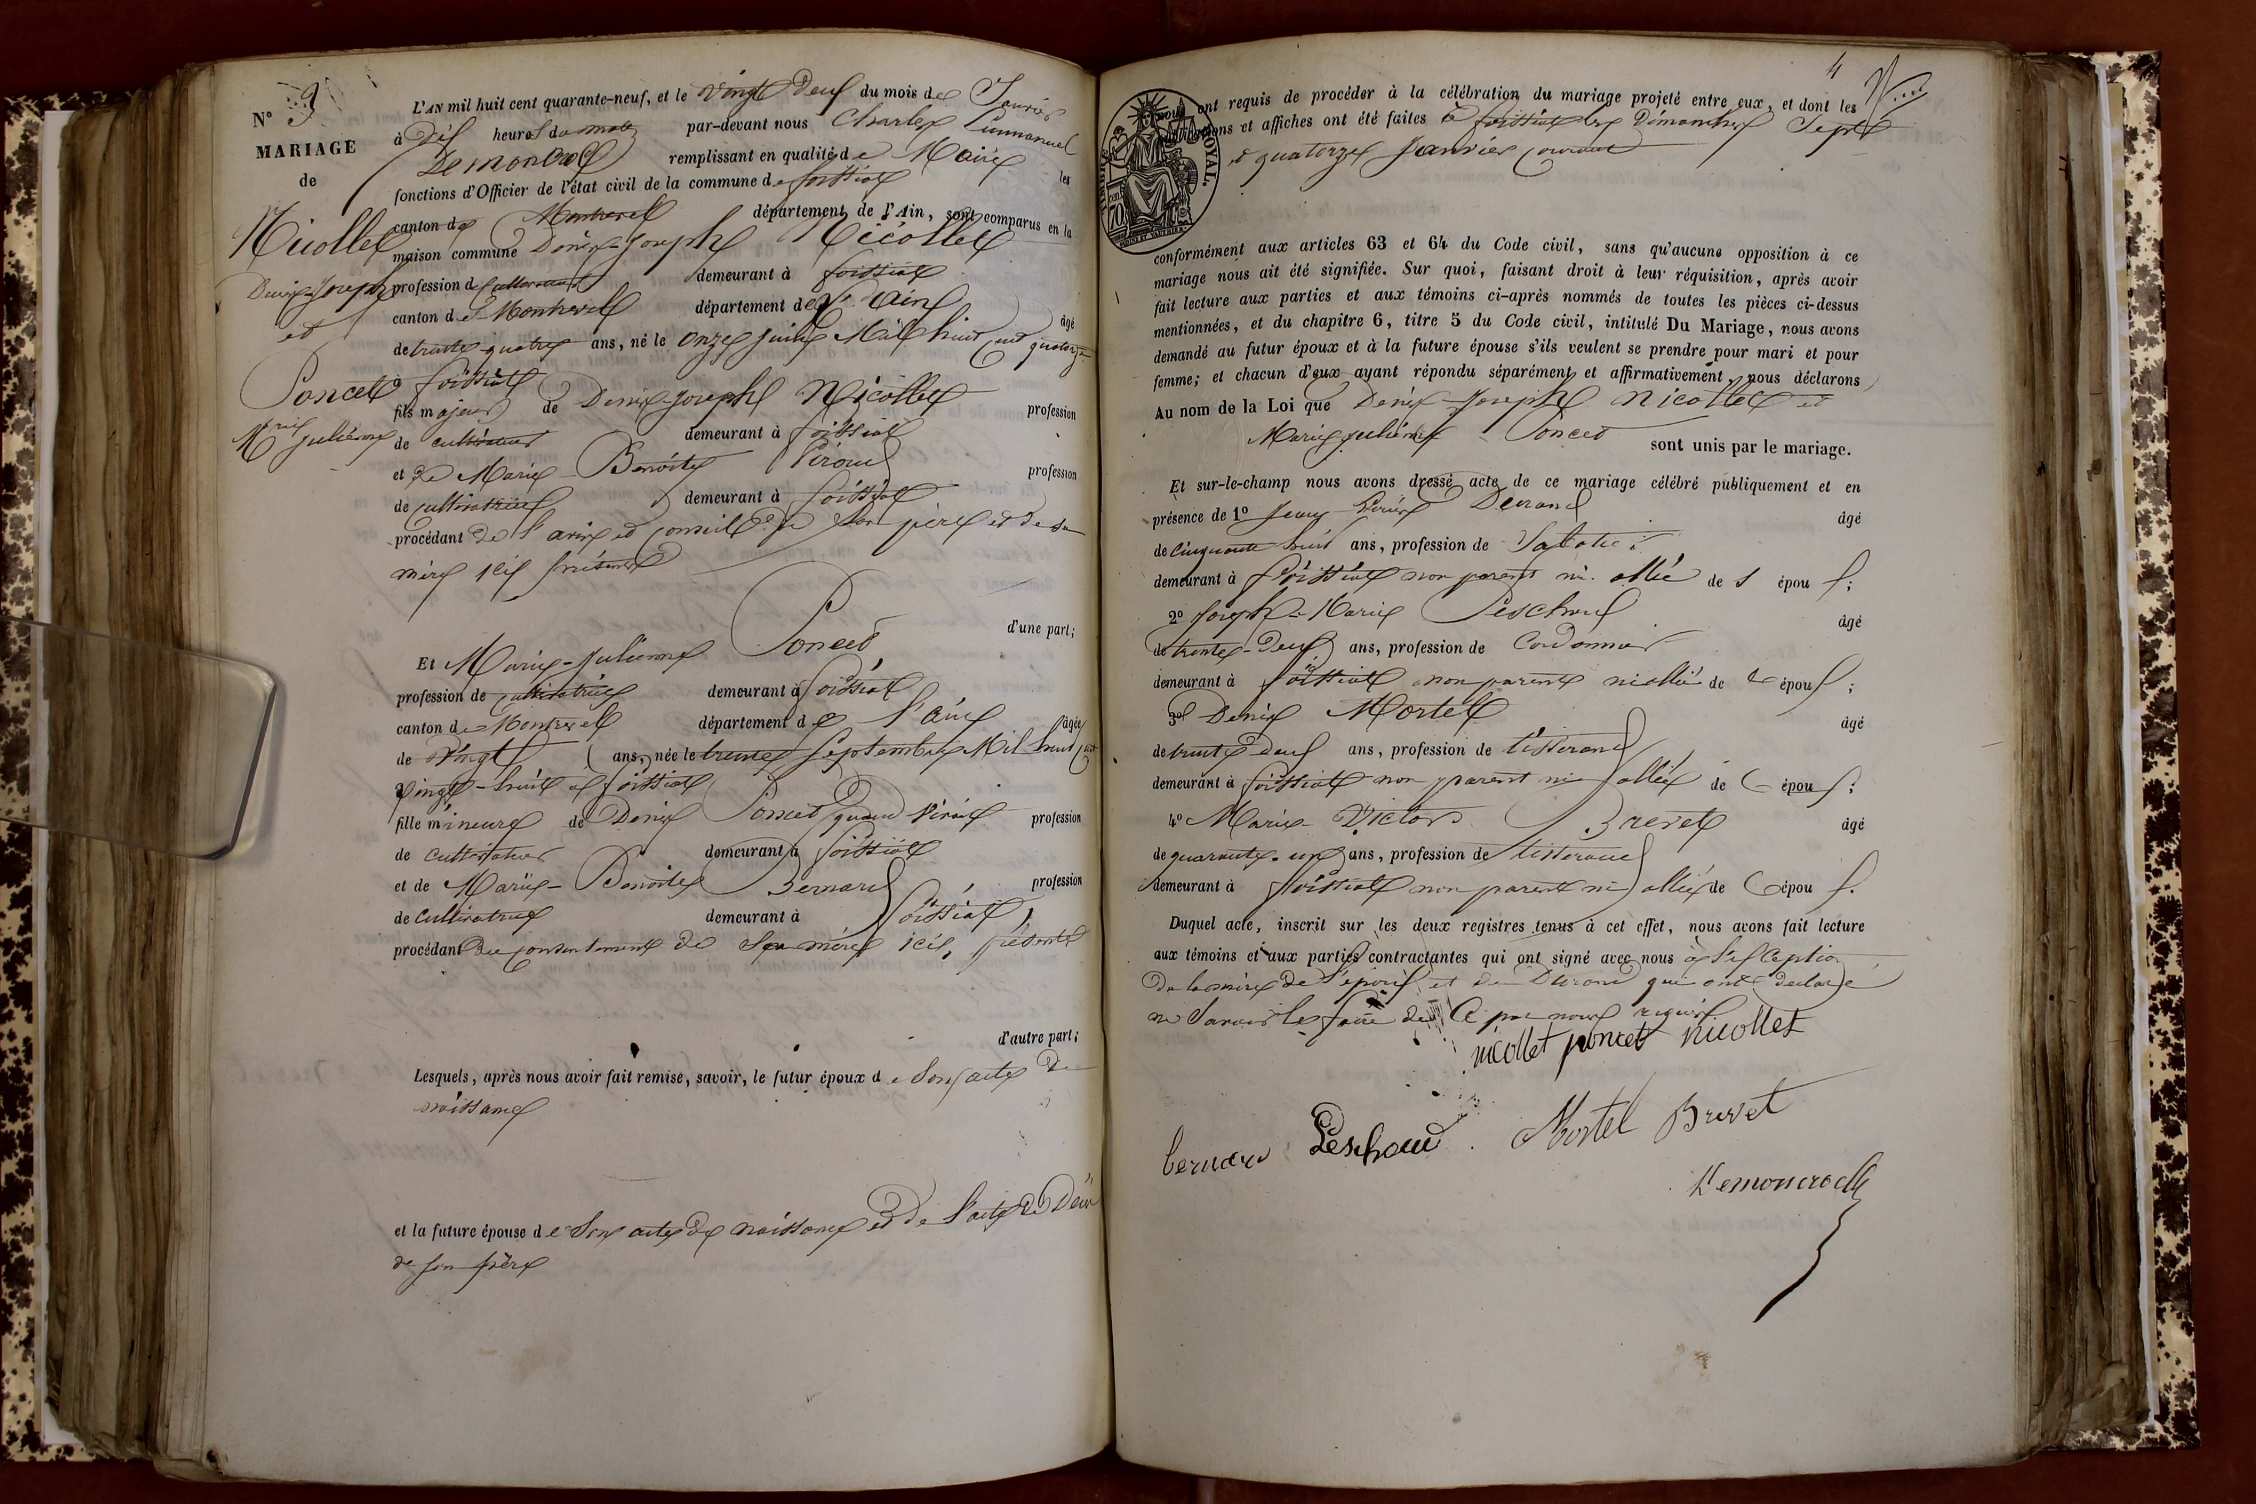 N° 3
MARIAGE
de
Nicollet
Denis-Joseph
et
Poncet
Mie Julienne
L'AN mil huit cent quarante-neuf, et le vingt deux du mois de Janvier
à Dix heures du matin par-devant nous Charles Emmanuel
Demoncroch remplissant en qualité de Maire les
fonctions d'Officier de l'état civil de la commune de foissiat
canton de Montrevel département de l'Ain, sont comparus en la
maison commune Denis-Joseph Nicollet
profession de cultivateur demeurant à foissiat
canton de Montrevel département de l'ain âgé
de trente-quatre ans, né le onze juillet Mil huit cent quatorze
à foissiat
fils majeur de Denis-Joseph Nicollet profession
de cultivateur demeurant à foissiat
et de Marie-Benoite Piroud profession
de cultivatrice demeurant à foissiat
procédant de l'avis et conseil de son père et de sa
mère ici présents
d'une part;
Et Marie-Julienne Poncet
profession de cultivatrice demeurant à foissiat
canton de Montrevel département de l'ain âgée
de vingt ans, née le treize Septembre Mil huit cent
vingt-huit à foissiat
fille mineure de Denis Poncet quand vivait profession
de cultivateur demeurant à foissiat
et de Marie-Benoite Bernard profession
de cultivatrice demeurant à foissiat,
procédant du consentement de sa mère ici présente
d'autre part;
Lesquels, après nous avoir fait remise, savoir, le futur époux de son acte de
naissance
et la future épouse de son acte de naissance et de l'acte de Décès
de son père
4
TIMBRE ROYAL.
70
nous ont requis de procéder à la célébration du mariage projeté entre eux, et dont les
publications et affiches ont été faites à foissiat les Dimanches Sept
et quatorze Janvier courant
conformément aux articles 63 et 64 du Code civil, sans qu'aucune opposition à ce
mariage nous ait été signifiée. Sur quoi, faisant droit à leur réquisition, après avoir
fait lecture aux parties et aux témoins ci-après nommés de toutes les pièces ci-dessus
mentionnées, et du chapitre 6, titre 5 du Code civil, intitulé Du Mariage, nous avons
demandé au futur époux et à la future épouse s'ils veulent se prendre pour mari et pour
femme; et chacun d'eux ayant répondu séparément et affirmativement, nous déclarons
Au nom de la Loi que Denis-Joseph Nicollet et
Marie Julienne Poncet sont unis par le mariage.
Et sur-le-champ nous avons dressé acte de ce mariage célébré publiquement et en
présence de 1° Durand âgé
de cinquante huit ans, profession de Sabotier
demeurant à foissiat non parent ni allié des époux;
2° Joseph-Marie Peschoud âgé
de trente-deux ans, profession de Cordonnier
demeurant à foissiat non parent ni allié des époux;
3° Denis Mortel âgé
de trente deux ans, profession de tisserand
demeurant à foissiat non parent ni allié des époux;
4° Marie Victor Brevet âgé
de quarante-un ans, profession de tisserand
demeurant à foissiat non parent ni allié des époux.
Duquel acte, inscrit sur les deux registres tenus à cet effet, nous avons fait lecture
aux témoins et aux parties contractantes qui ont signé avec nous à l'exception
de la mère de l'époux et de Durand qui ont déclaré
ne savoir le faire de ce par nous requis
nicollet poncet nicollet
bernard Peschoud Mortel Brevet
Demoncroch